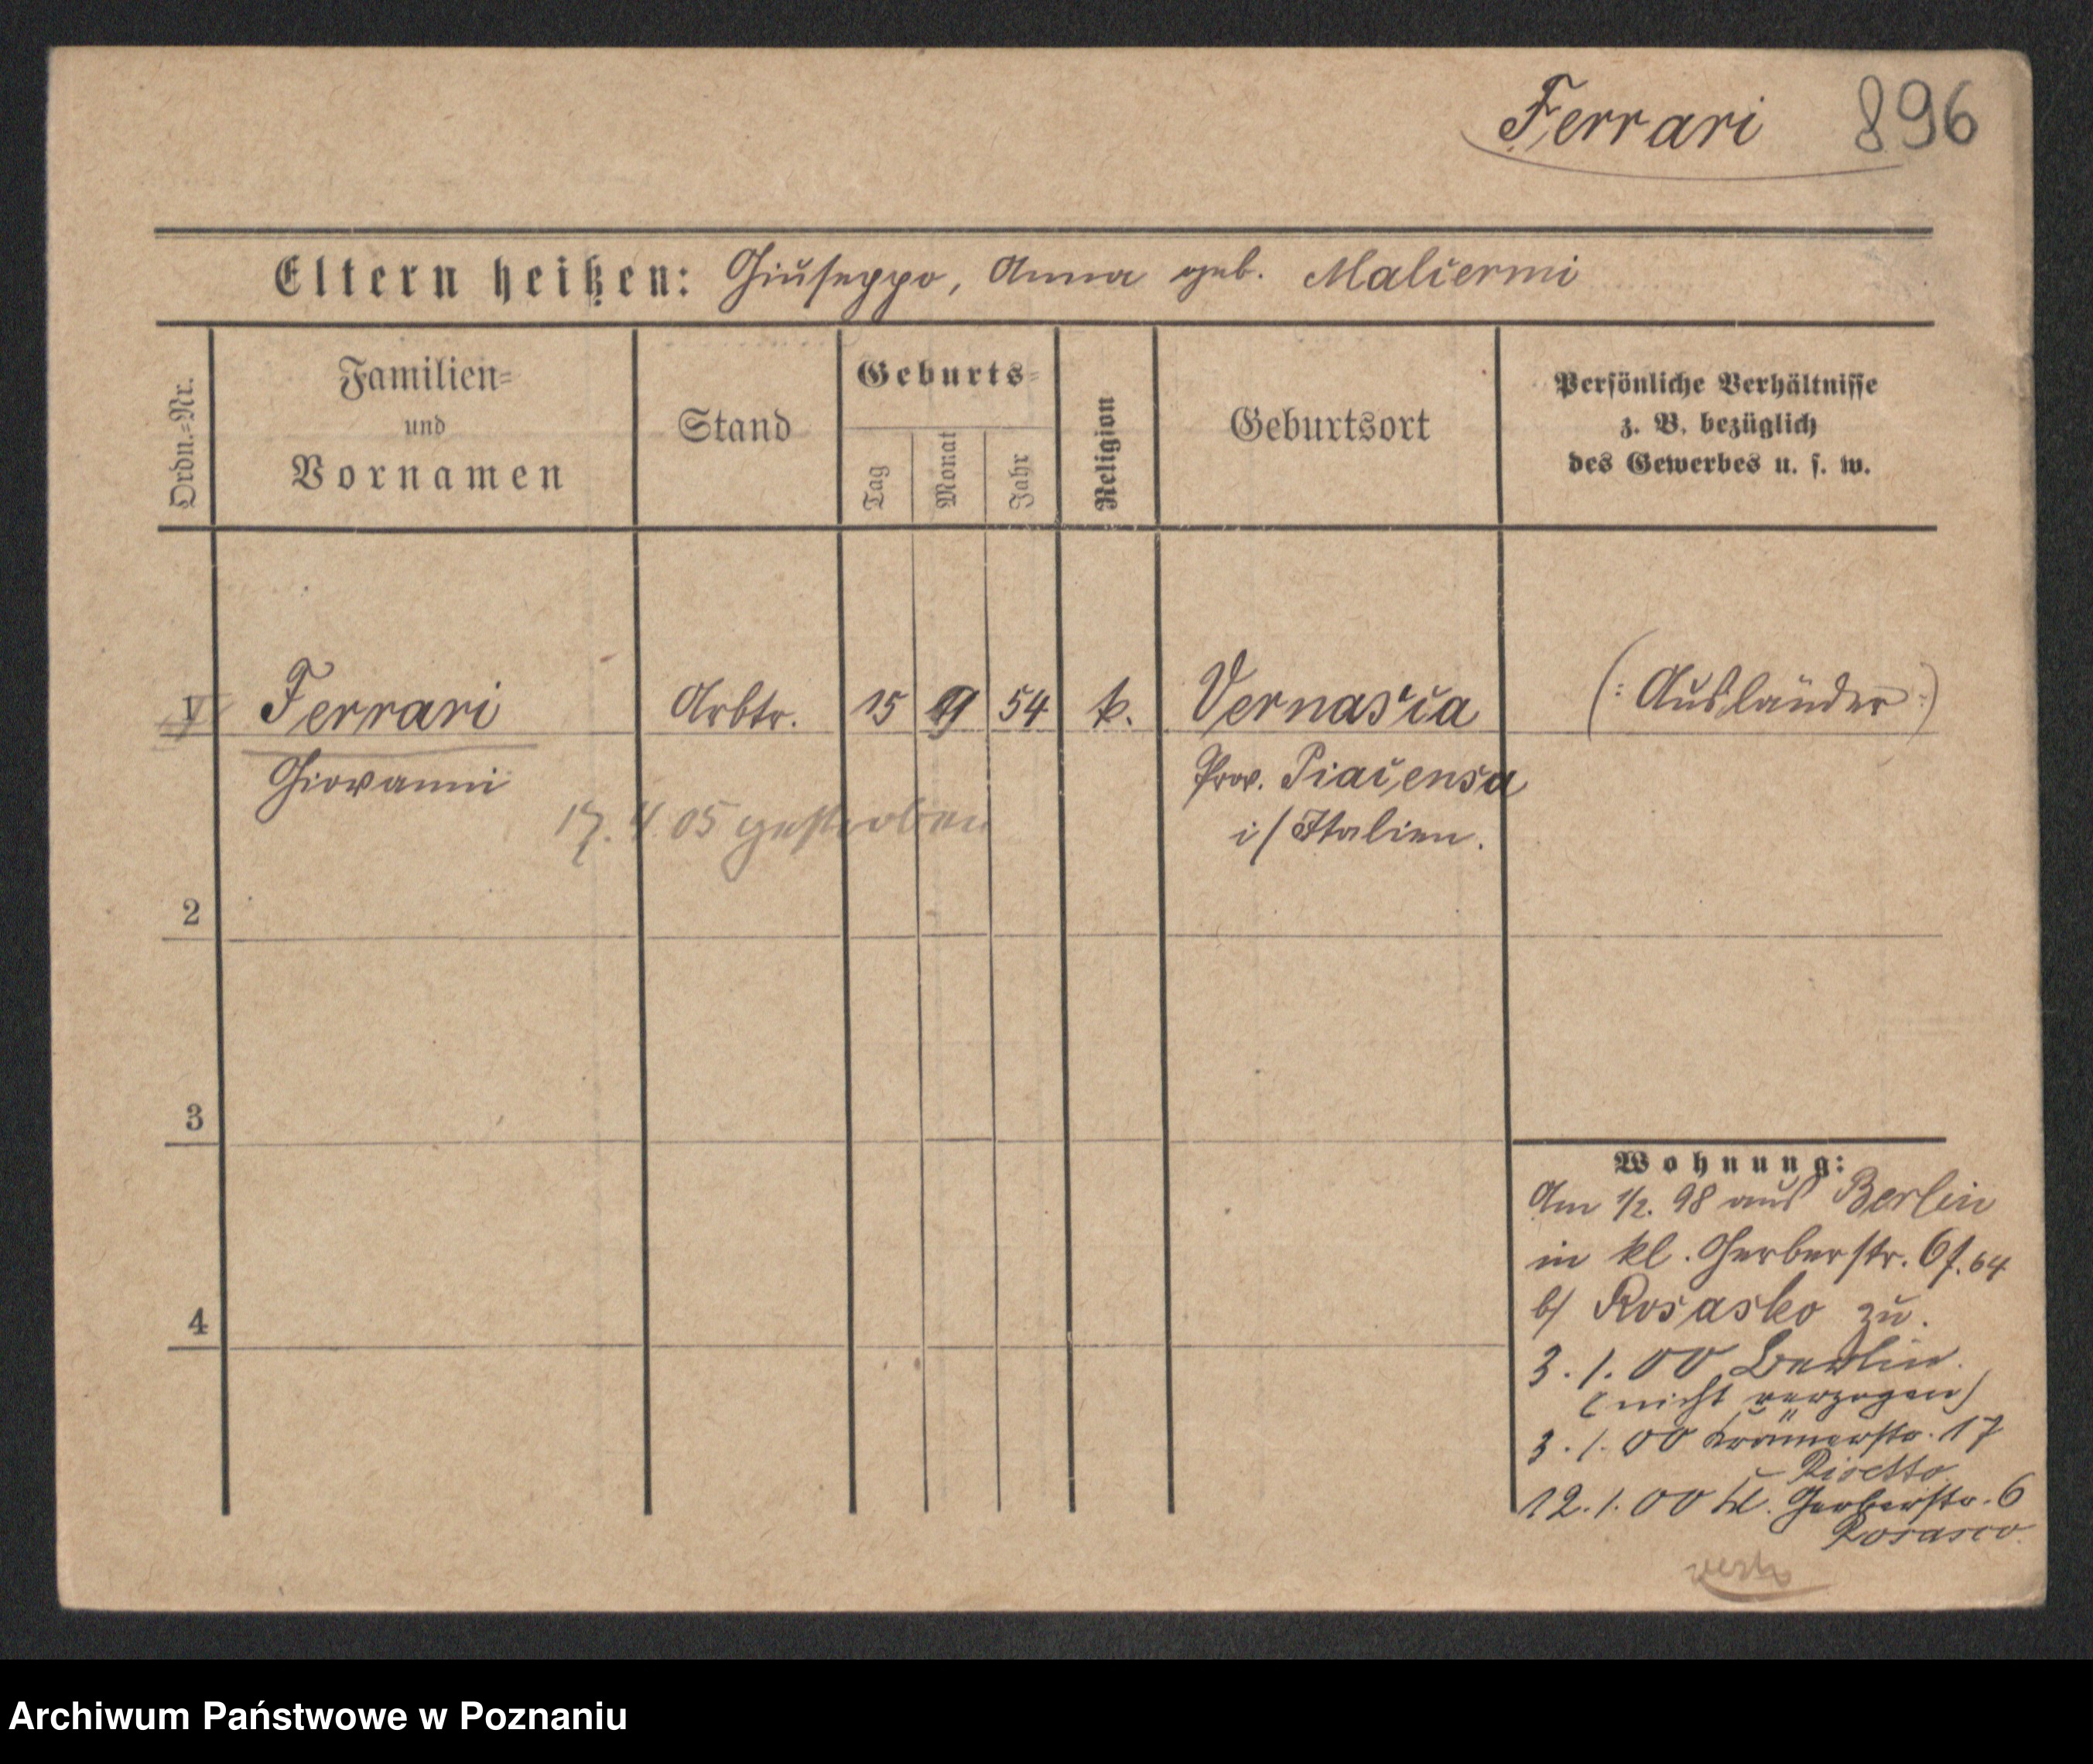 Ferrari 896
Eltern heißen: Giuseppo, Anna geb. Maliermi
Ordn.=Nr.
Familien=
und
Vornamen
Stand
Geburts=
Tag
Monat
Jahr
Religion
Geburtsort
Persönliche Verhältnisse
z. B. bezüglich
des Gewerbes u. s. w.
1 Ferrari Arbtr. 15 9 54 k. Vernasca (: Ausländer :)
Giovanni Prov. Piacensa
17. 4. 05 gestorben
i/ Italien.
2
3
4
Wohnung:
Am 1/2. 98 aus Berlin
in kl. Gerberstr. 6 f. 64
b/ Rosasko zu.
3. 1. 00 Berlin.
(nicht verzogen)
3. 1. 00 Krämerstr. 17
12. 1. 00 kl. Gerberstr. 6
Rosasco.
Archiwum Państwowe w Poznaniu